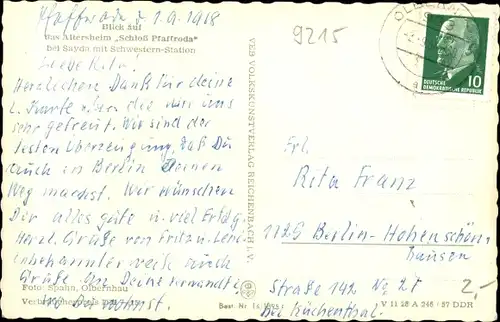 Pfaffroda d. 1.9.1968
Blick auf
das Altersheim „Schloß Pfaffroda"
bei Sayda mit Schwestern-Station
Liebe Rita!
Herzlichen Dank für deine
l. Karte über die wir uns
sehr gefreut. Wir sind der
festen Überzeugung, daß Du
auch in Berlin Deinen
Weg machst. Wir wünschen
Dir alles gute u. viel Erfolg.
Herzl. Grüße von Fritz u.
unbekannter weise auch
Grüße an Deine
wo Du wohnst.
Foto: Spahn, Olbernhau
VEB VOLKSKUNSTVERLAG REICHENBACH i. V.
Best. Nr.
9215
OLBERNHAU
DEUTSCHE
DEMOKRATISCHE REPUBLIK
10
Frl.
Rita Franz
1125 Berlin-Hohenschön-
hausen
Straße 142 No 27
bei Küchenthal.
2,-
V 11 28 A 246 / 57 DDR